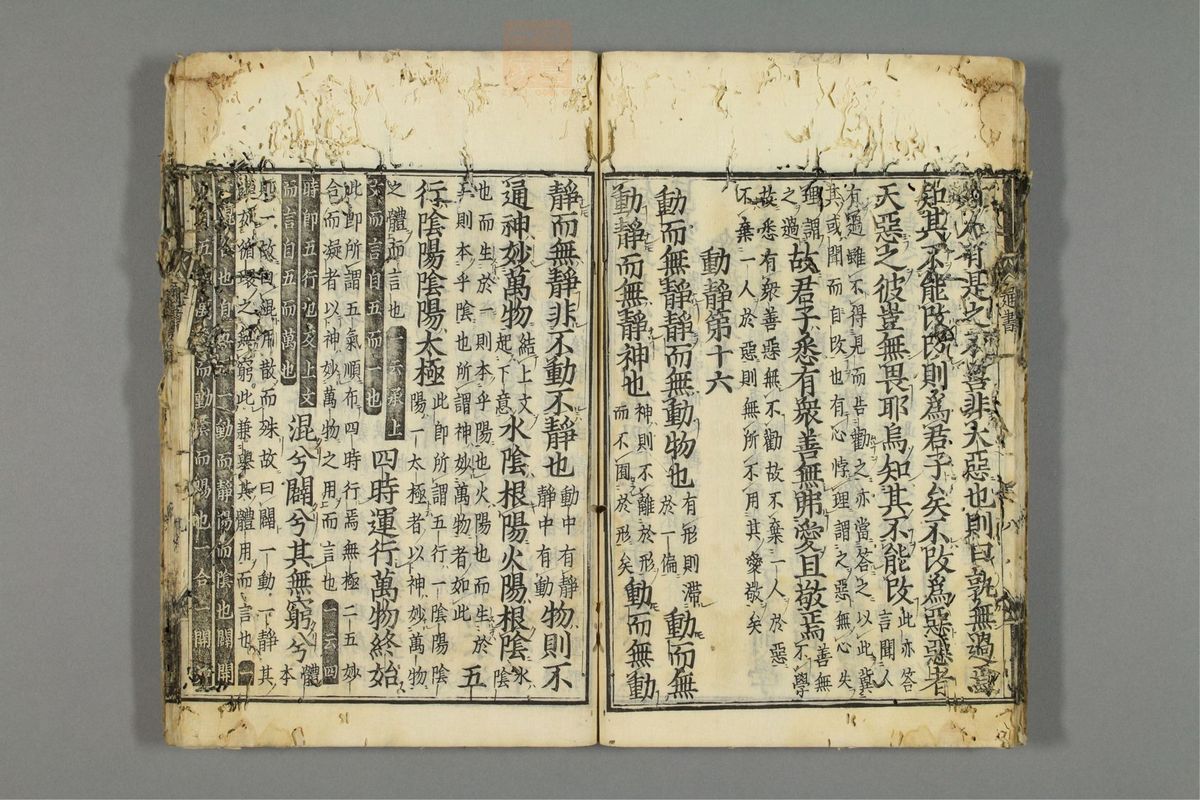 有是之不善非大惡也則曰孰無過焉
知其不能改改則為君子矣不改為惡惡者
天惡之彼豈無畏耶烏知其不能改此亦答
言聞人
有過雖不得見而告勸之亦當答之以此冀
其或聞而自改也有心悖理謂之惡無心失
理謂
之過
故君子悉有衆善無弗愛且敬焉善無
不學
故悉有衆善惡無不勸故不棄一人於惡
不棄一人於惡則無所不用其愛敬矣
動靜第十六
動而無靜靜而無動物也有形則滯
於一偏
動而無
動靜而無靜神也神則不離於形
而不囿於形矣
動而無動
靜而無靜非不動不靜也動中有靜
靜中有動
物則不
通神妙萬物結上文
起下意
水陰根陽火陽根陰水陰
也而生於一則本乎陽也火陽也而生於
二則本乎陰也所謂神妙萬物者如此
五
行陰陽陰陽太極此即所謂五行一陰陽陰
陽一太極者以神妙萬物
之體而言也一云承上
文而言自五而一也
四時運行萬物終始
此即所謂五氣順布四時行焉無極二五妙
合而凝者以神妙萬物之用而言也一云四
時即五行也反上文
而言自五而萬也
混兮闢兮其無窮兮體本
則一故曰混用散而殊故曰闢一動一靜其
運如循環之無窮此兼舉其體用而言也一
合也自萬而一動而靜陽而陰也闢開
也自五而萬而動陰而陽也一合一開